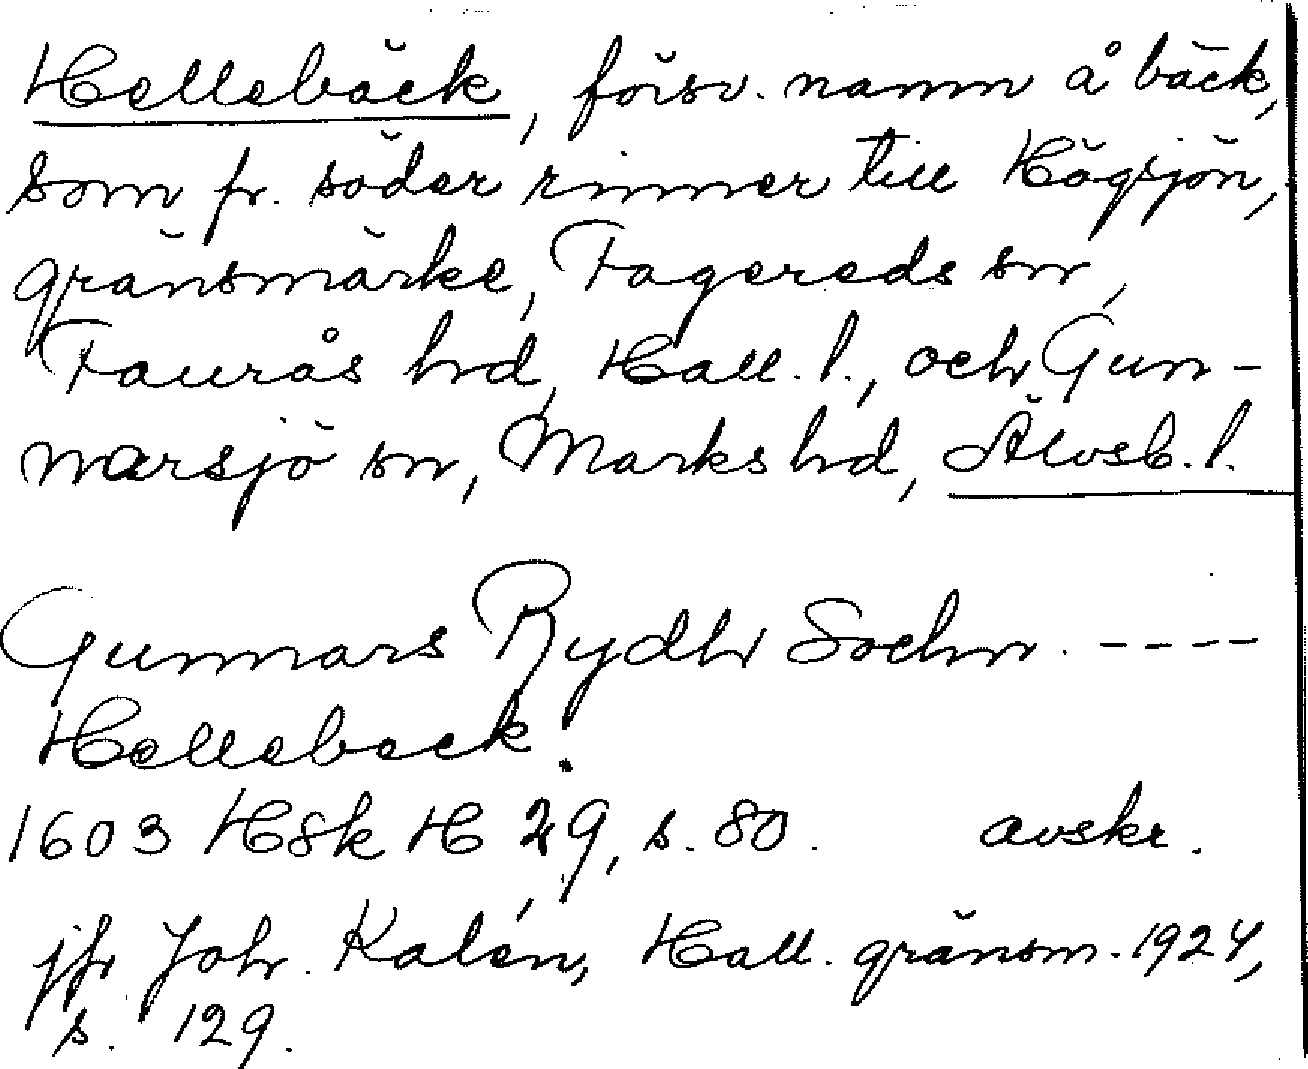 Hellebäck, försv. namn å bäck,
som fr. söder rinner till Högsjön,
gränsmärke, Fagereds sn,
Faurås hd, Hall. l., och Gun-
narsjö sn, Marks hd, Älvsb. l.
Gunnars Rydh Sochn. ----
Hellebeck.
1603 HSk H 29, s. 80. avskr.
jfr Joh. Kalén, Hall. gränsm. 1924,
s. 129.